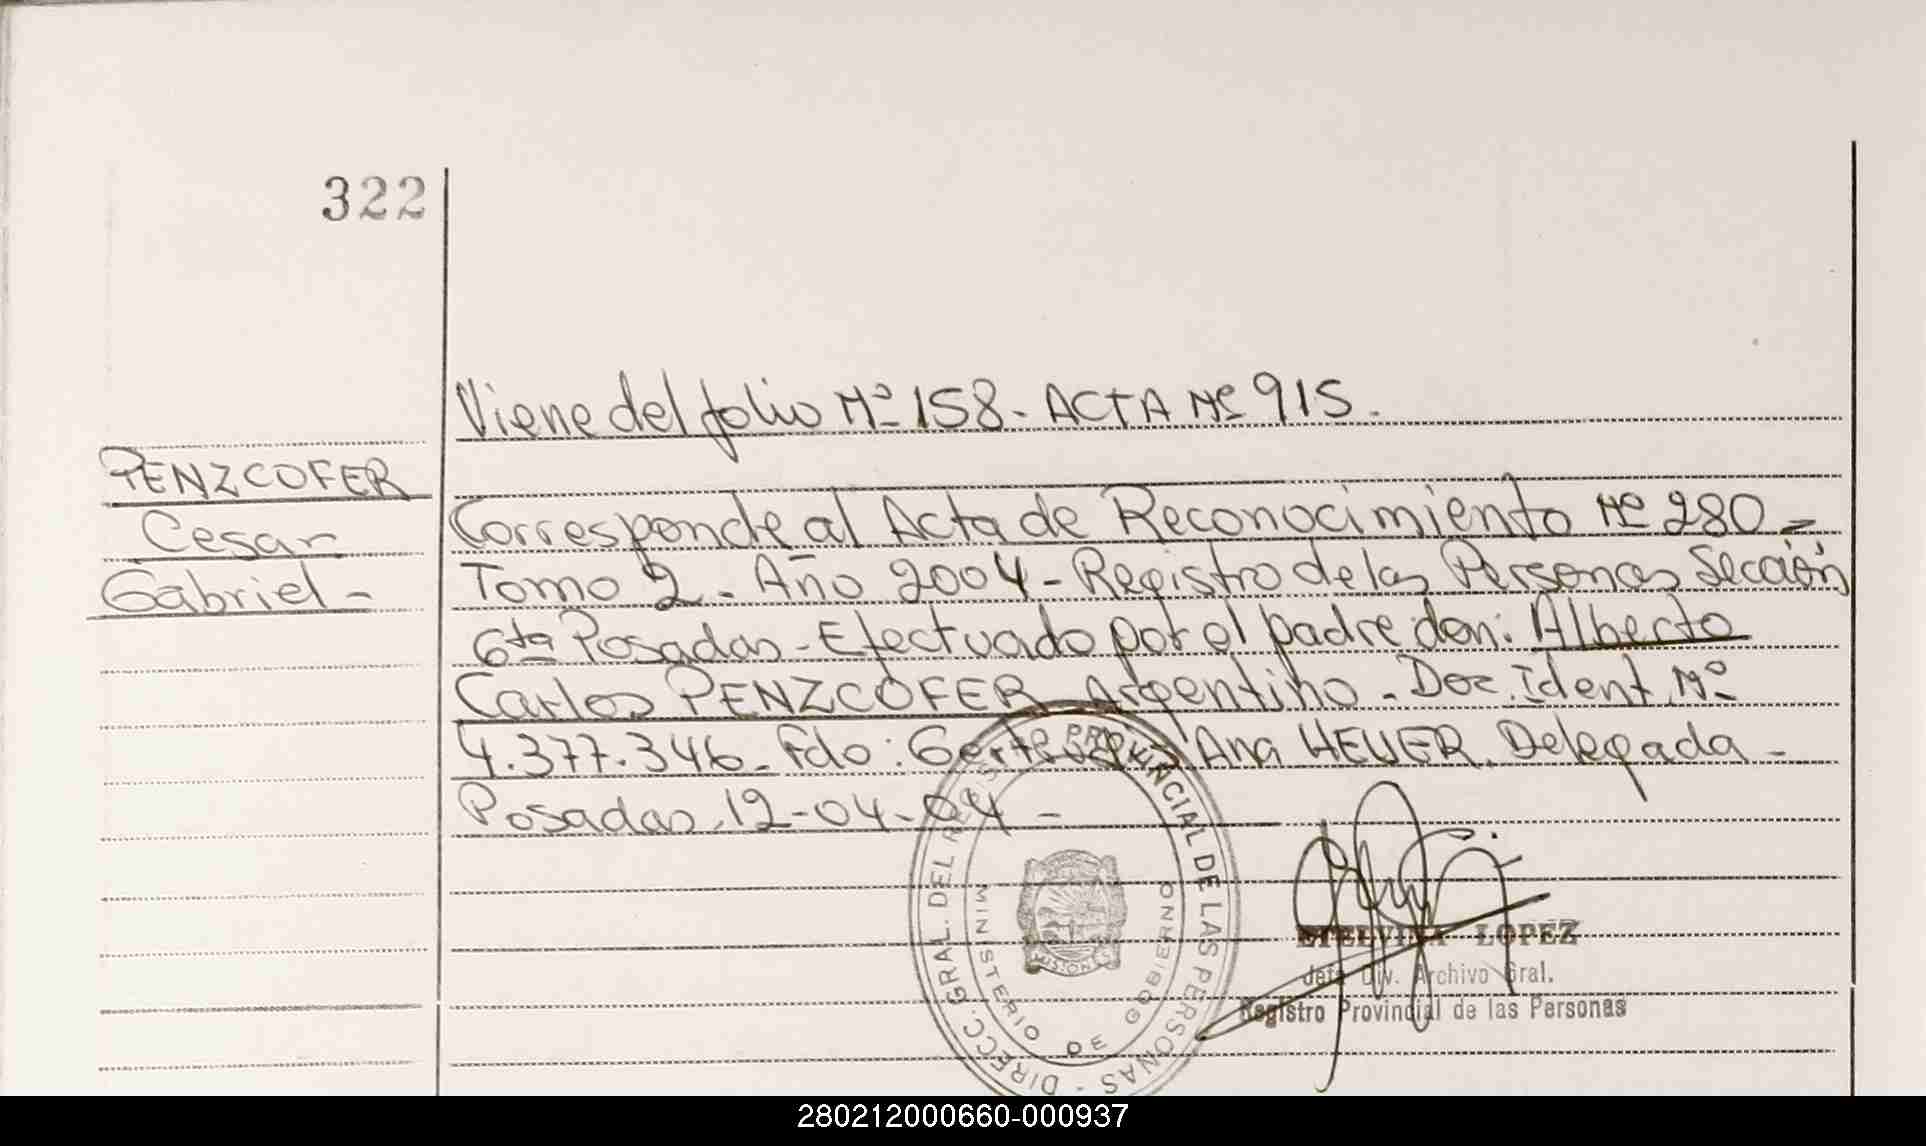 322
Viene del folio Nº 158- ACTA Nº 915.
PENZCOFER
Cesar
Gabriel-
Corresponde al Acta de Reconocimiento Nº 280-
Tomo 2- Año 2004-Registro de las Personas Sección
6ta Posadas-Efectuado por el padre don: Alberto
Carlos PENZCOFER Argentino-Doc. Ident. Nº
4.377.346- Fdo: Ana HEUER. Delegada-
Posadas, 12-04-04-
DIRECC. GRAL. DEL REGISTRO PROVINCIAL DE LAS PERSONAS-
MINISTERIO DE GOBIERNO
MISIONES
ETELVINA LOPEZ
Jefa Div. Archivo Gral.
Registro Provincial de las Personas
280212000660-000937